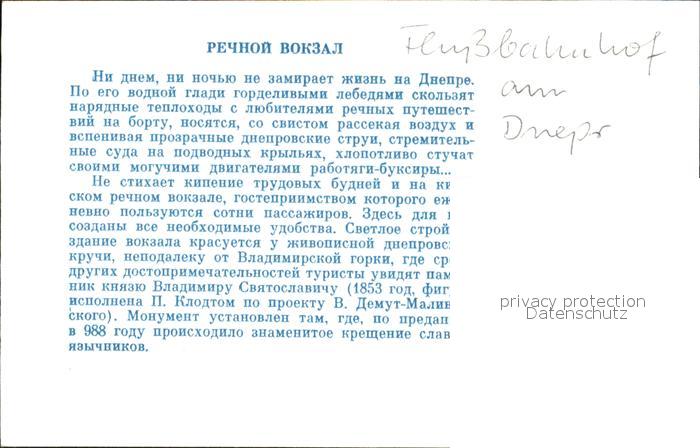 РЕЧНОЙ ВОКЗАЛ
Ни днем, ни ночью не замирает жизнь на Днепре.
По его водной глади горделивыми лебедями скользят
нарядные теплоходы с любителями речных путешест-
вий на борту, носятся, со свистом рассекая воздух и
вспенивая прозрачные днепровские струи, стремитель-
ные суда на подводных крыльях, хлопотливо стучат
своими могучими двигателями работяги-буксиры...
Не стихает кипение трудовых будней и на ки
ском речном вокзале, гостеприимством которого еж
невно пользуются сотни пассажиров. Здесь для
созданы все необходимые удобства. Светлое строй
здание вокзала красуется у живописной днепровс
кручи, неподалеку от Владимирской горки, где сре
других достопримечательностей туристы увидят пам
ник князю Владимиру Святославичу (1853 год, фиг
исполнена П. Клодтом по проекту В. Демут-Малин
ского). Монумент установлен там, где, по предан
в 988 году происходило знаменитое крещение слав
язычников.
Flußbahnhof
am
Dnepr
privacy protection
Datenschutz